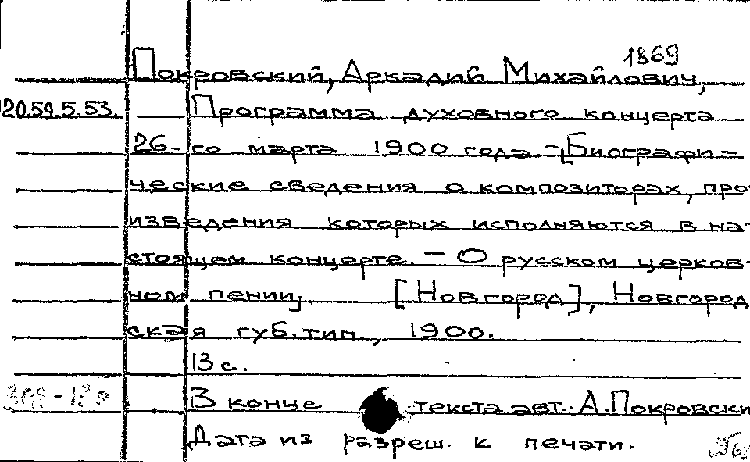 1869
Покровский, Аркадий Михайлович,
20.59.5.53. Программа духовного концерта
26-го марта 1900 года.-[Биографи-
ческие сведения о композиторах, про-
изведения которых исполняются в на-
стоящем концерте. - О русском церков-
ном пении]. [Новгород], Новгород
ская губ. тип., 1900.
13 с.
В конце текста авт.: А. Покровски
Дата из разреш. к печати.